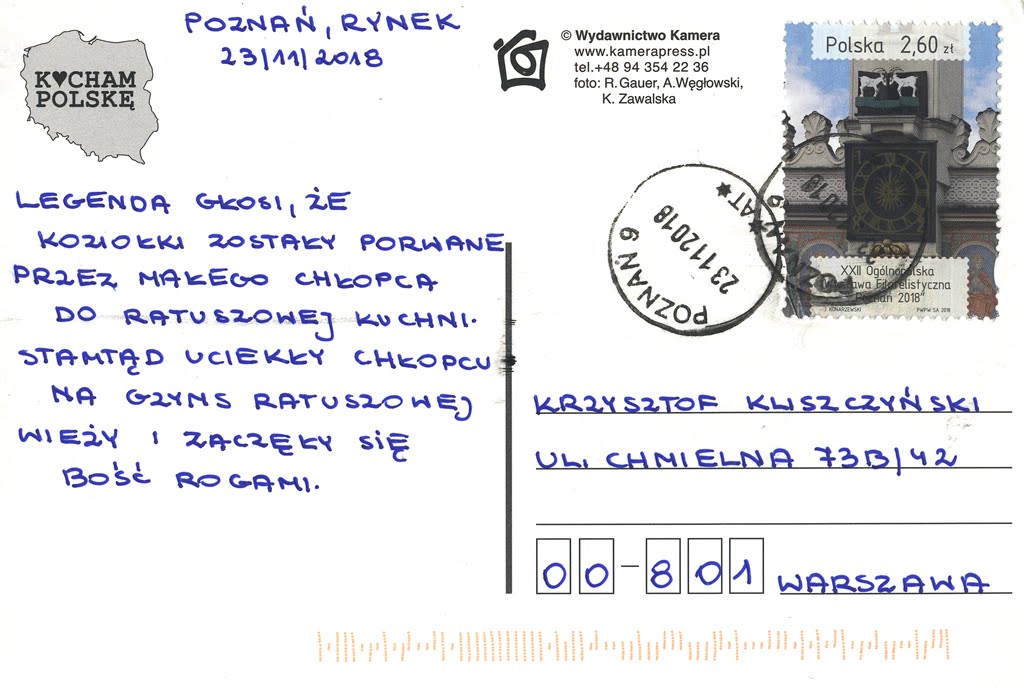 POZNAŃ, RYNEK
23/11/2018
K♥CHAM
POLSKĘ
© Wydawnictwo Kamera
www.kamerapress.pl
tel.+48 94 354 22 36
foto: R. Gauer, A.Węgłowski,
K. Zawalska
Polska 2,60 zł
XXII Ogólnopolska
Wystawa Filatelistyczna
Poznań 2018"
J. KONARZEWSKI PWPW SA 2018
POZNAŃ 6
23112018
★AT★
LEGENDA GŁOSI, ŻE
KOZIOŁKI ZOSTAŁY PORWANE
PRZEZ MAŁEGO CHŁOPCA
DO RATUSZOWEJ KUCHNI.
STAMTĄD UCIEKŁY CHŁOPCU
NA GZYMS RATUSZOWEJ
WIEŻY I ZACZĘŁY SIĘ
BOŚĆ ROGAMI.
KRZYSZTOF KLISZCZYŃSKI
UL. CHMIELNA 73B/42
00-801 WARSZAWA